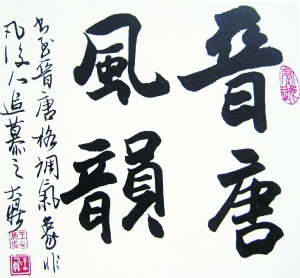 晋唐
風韻
書至晋唐格調氣象非
凡後人追慕之